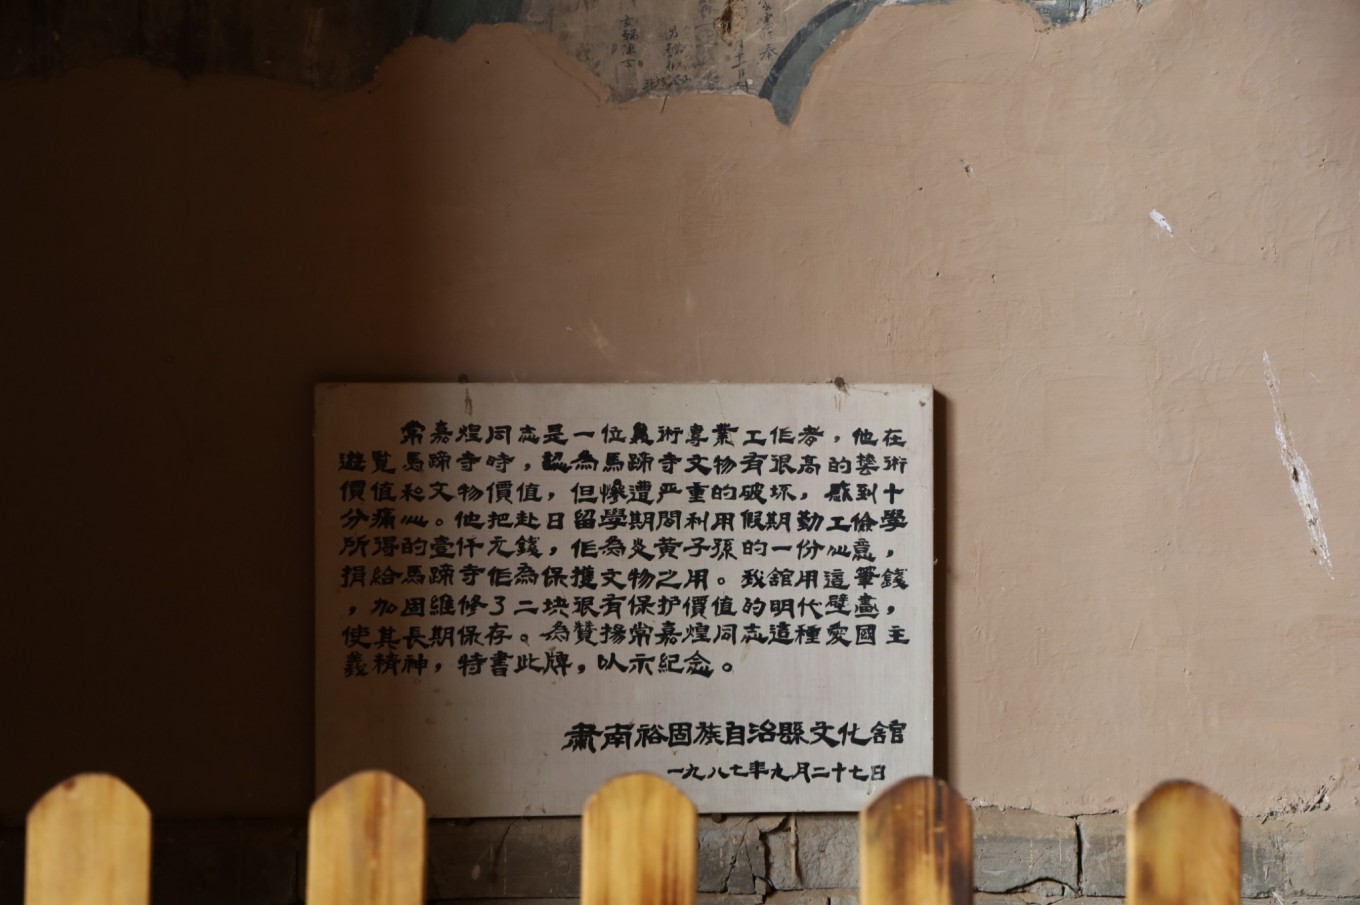 常嘉煌同志是一位美術專業工作者，他在
遊覧馬蹄寺時，認為馬蹄寺文物有很高的藝術
價值和文物價值，但慘遭严重的破坏，感到十
分痛心。他把赴日留學期間利用假期勤工儉學
所得的壹仟元錢，作為炎黄子孫的一份心意，
捐給馬蹄寺作為保護文物之用。我舘用這筆錢
，加固維修了二块很有保护價值的明代壁畵，
使其長期保存。為贊揚常嘉煌同志這種愛國主
義精神，特書此牌，以示紀念。
肅南裕固族自治縣文化舘
一九八七年九月二十七日